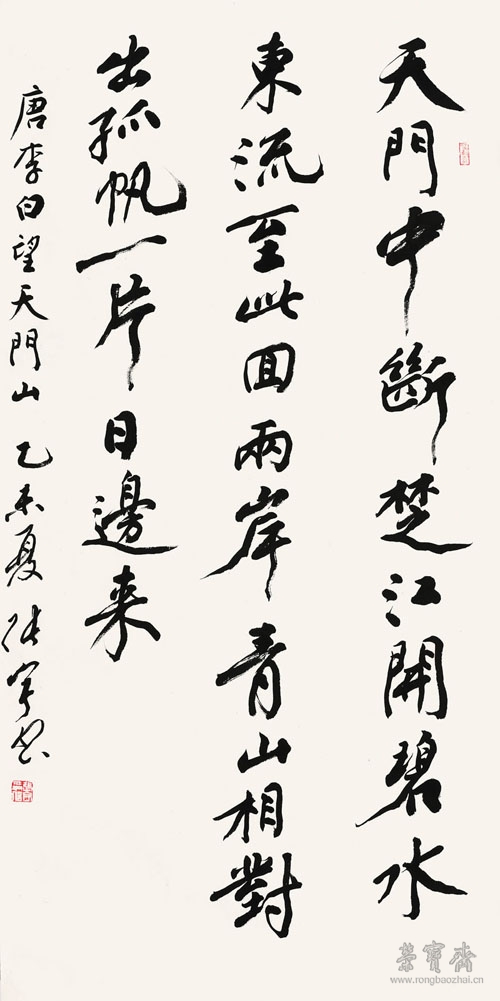 天門中斷楚江開碧水
東流至此回兩岸青山相對
出孤帆一片日邊来
唐李白望天門山 乙未夏 張宇书
榮寳齋
www.rongbaozhai.cn